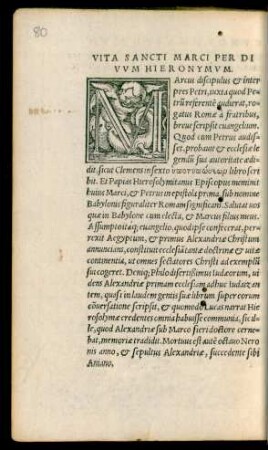 80
VITA SANCTI MARCI PER DI
VVM HIERONYMVM.
MArcus discipulus & inter
pres Petri, iuxta quod Pe
trũ referentẽ audierat, ro
gatus Romæ à fratribus,
breue scripsit euangelium.
Quod cum Petrus audis-
set, probauit & ecclesiæ le
gendũ sua autoritate ædi-
dit, sicut Clemens in sexto libro scri
bit. Et Papias Hierosolymitanus Episcopus meminit
huius Marci, & Petrus in epistola prima, sub nomine
Babylonis figuraliter Romam significans. Salutat vos
quæ in Babylone cum electa, & Marcus filius meus.
Assumpto itaq; euangelio, quod ipse confecerat, perre-
xit Aegyptum, & primus Alexandriæ Christum
annuncians, constituit ecclesiã tanta doctrina & vitæ
continentia, ut omnes sectatores Christi ad exemplũ
sui cogeret. Deniq; Philo disertissimus Iudæorum, ui
dens Alexandriæ primam ecclesiam adhuc iudaizan
tem, quasi in laudem gentis suæ librum super eorum
cõuersatione scripsit, & quomodo Lucas narrat Hie
rosolymæ credentes omnia habuisse communia, sic il-
le, quod Alexandriæ sub Marco fieri doctore cerne-
bat, memoriæ tradidit. Mortuus est autẽ octauo Nero
nis anno, & sepultus Alexandriæ, succedente sibi
Aniano.